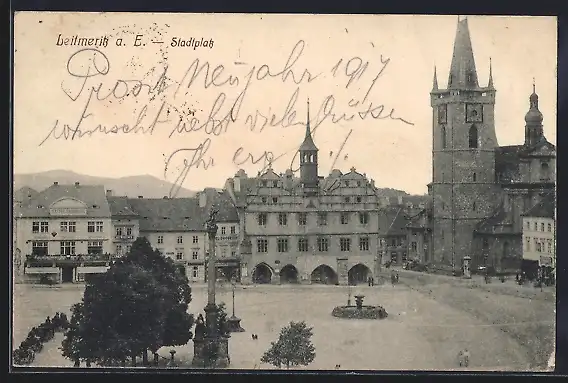 Leitmeritz a. E. — Stadtplatz
Prost Neujahr 1917
wünscht nebst vielen Grüssen
Ihr erg.